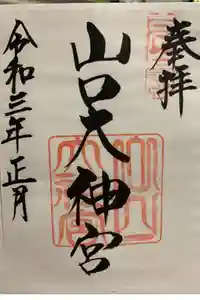 奉拝
山口大神宮
令和三年正月